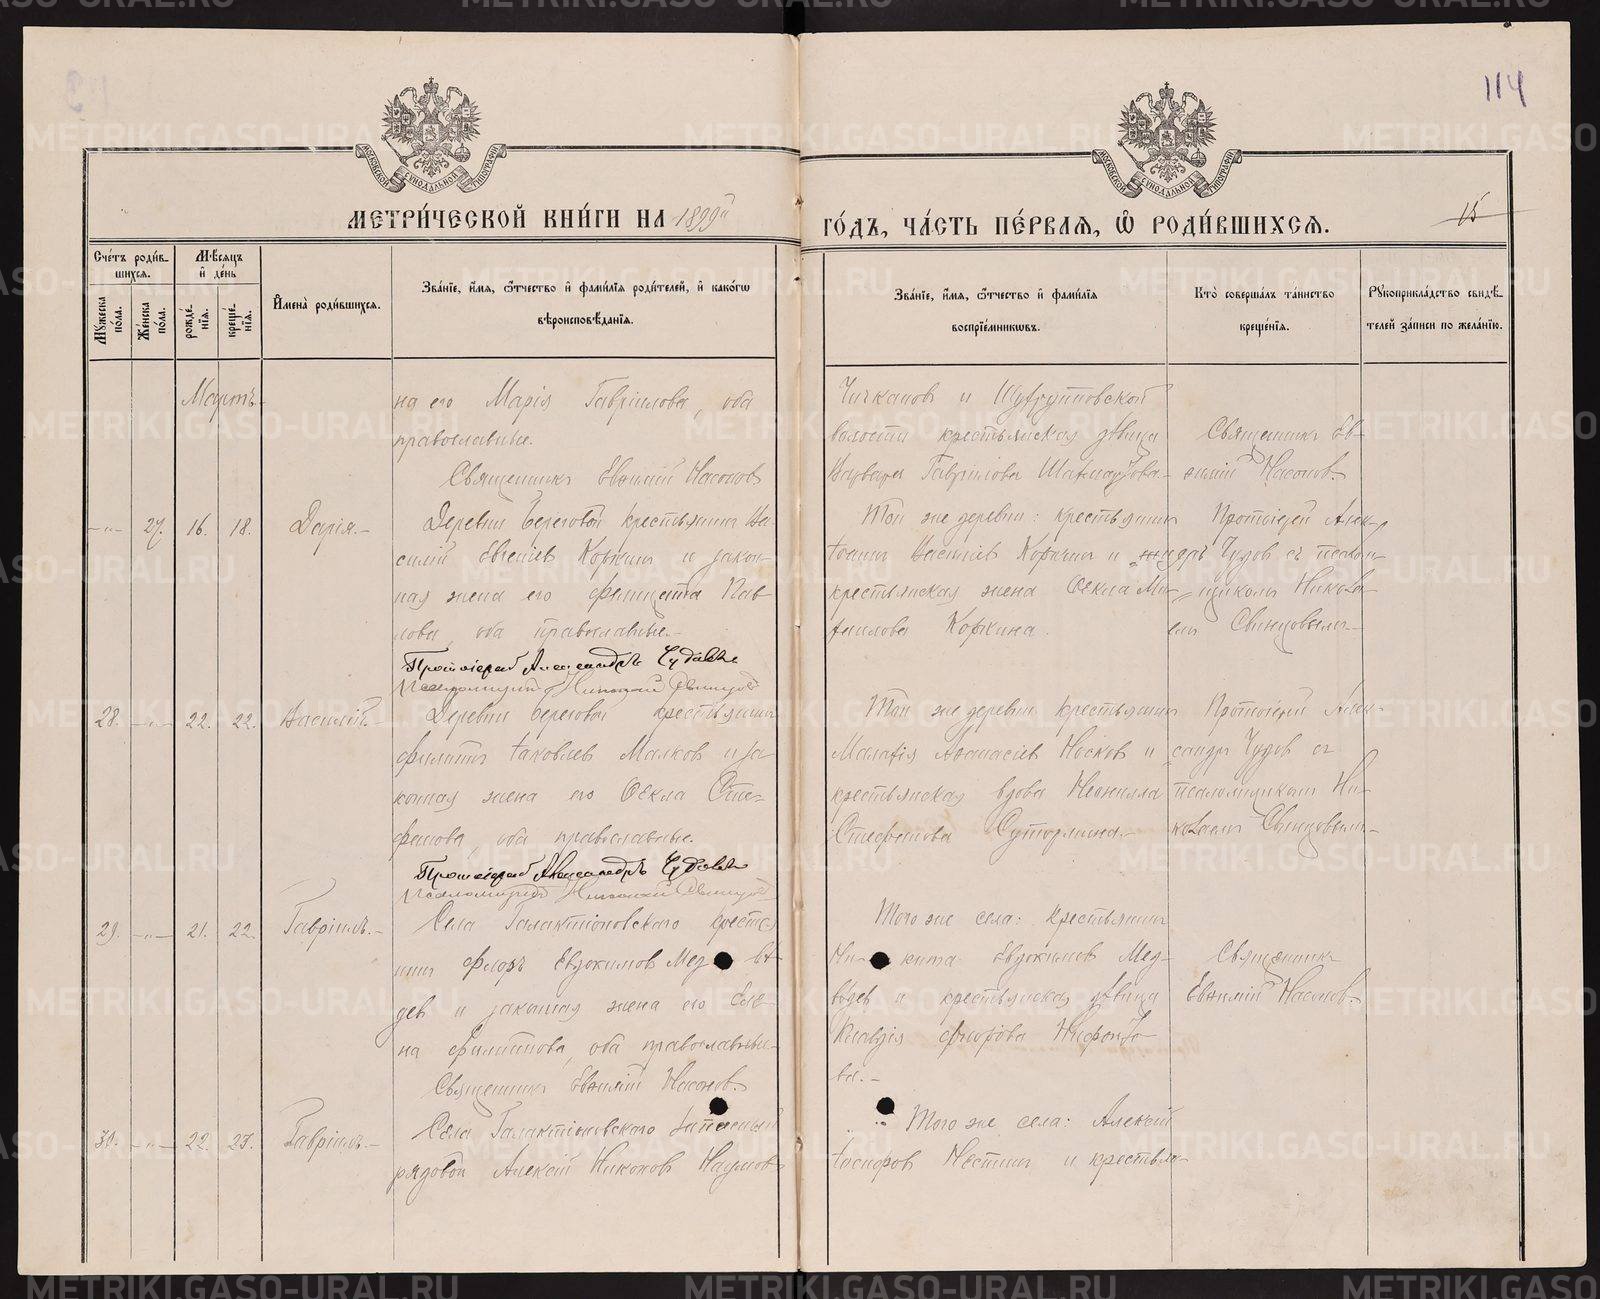 114
МЕТРИ́ЧЕСКОЙ КНИ́ГИ НА 1899й ГО́ДЪ, ЧА́СТЬ ПЕ́РВАЯ, Ѡ РОДИ́ВШИХСЯ.
15
Сче́тъ роди́в-
шихся.
Мѣ́сяцъ
и҆ де́нь
Мꙋ́жеска по́ла.
Же́нска по́ла.
рожде́-
нїя.
креще́-
нїя.
И҆мена̀ роди́вшихся.
Зва́нїе, и҆́мя, ѻ҆́тчество и҆ фами́лїя роди́телей, и҆ како́гѡ
вѣроисповѣ́данїя.
Зва́нїе, и҆́мя, ѻ҆́тчество и҆ фами́лїя
воспрїе́мниковъ.
Кто̀ соверша́лъ та́инство
креще́нїя.
Рꙋкоприкла́дство свидѣ́-
телей за́писи по жела́нїю.
Мартъ
на его Марія Гавріилова, оба
православные.
Священникъ Евѳимій Насонов
Чичканов и Шутруповской
волости крестьянская дѣвица
Варвара Гавріилова
Священникъ Ев-
ѳимій Насонов.
-"- 27. 16. 18. Дарія.
Деревни Береговой крестьянинъ Ва-
силій Евгеніев Коркинъ и закон-
ная жена его Фелицата Пав-
лова, оба православные.
Протоіерей Александръ Чудовъ
Псаломщик Николай Свинцов
Той же деревни: крестьянинъ
Васильев Коркинъ и
крестьянская жена Ѳекла Ми-
хаилова Коркина.
Протоіерей Алек-
сандръ Чудов съ псалом-
щикомъ Никола-
емъ Свинцовымъ
28. -"- 22. 22. Василій.
Деревни Береговой крестьянинъ
Филиппъ Іаковлев Малков и за-
конная жена его Ѳекла Сте-
фанова, оба православные.
Протоіерей Александръ Чудовъ
Псаломщик Николай Свинцов
Той же деревни крестьянинъ
Малахія Аѳанасіев Носков и
крестьянская вдова Неонилла
Протоіерей Алек-
сандръ Чудов съ
псаломщикомъ Ни-
колаемъ Свинцовымъ
29. -"- 21. 22. Гавріилъ.
Села Галактіоновскаго кресть-
нинъ Флоръ Евдокимов Мед вѣ-
дев и законная жена его Еле-
на Филиппова, оба православные.
Священникъ Евѳимій Насонов.
Того же села: Крестьянинъ
Ни- кита Евдокимов Мед-
вѣдев и крестьянская дѣвица
Клавдія Флорова Нифонто-
ва.
Священникъ
Евѳимій Насонов.
30. -"- 22. 23. Гавріилъ.
Села Галактіоновскаго запасный
рядовой Алексій Никонов Наумов
Того же села: Алексій
Іосифов и крестьян-